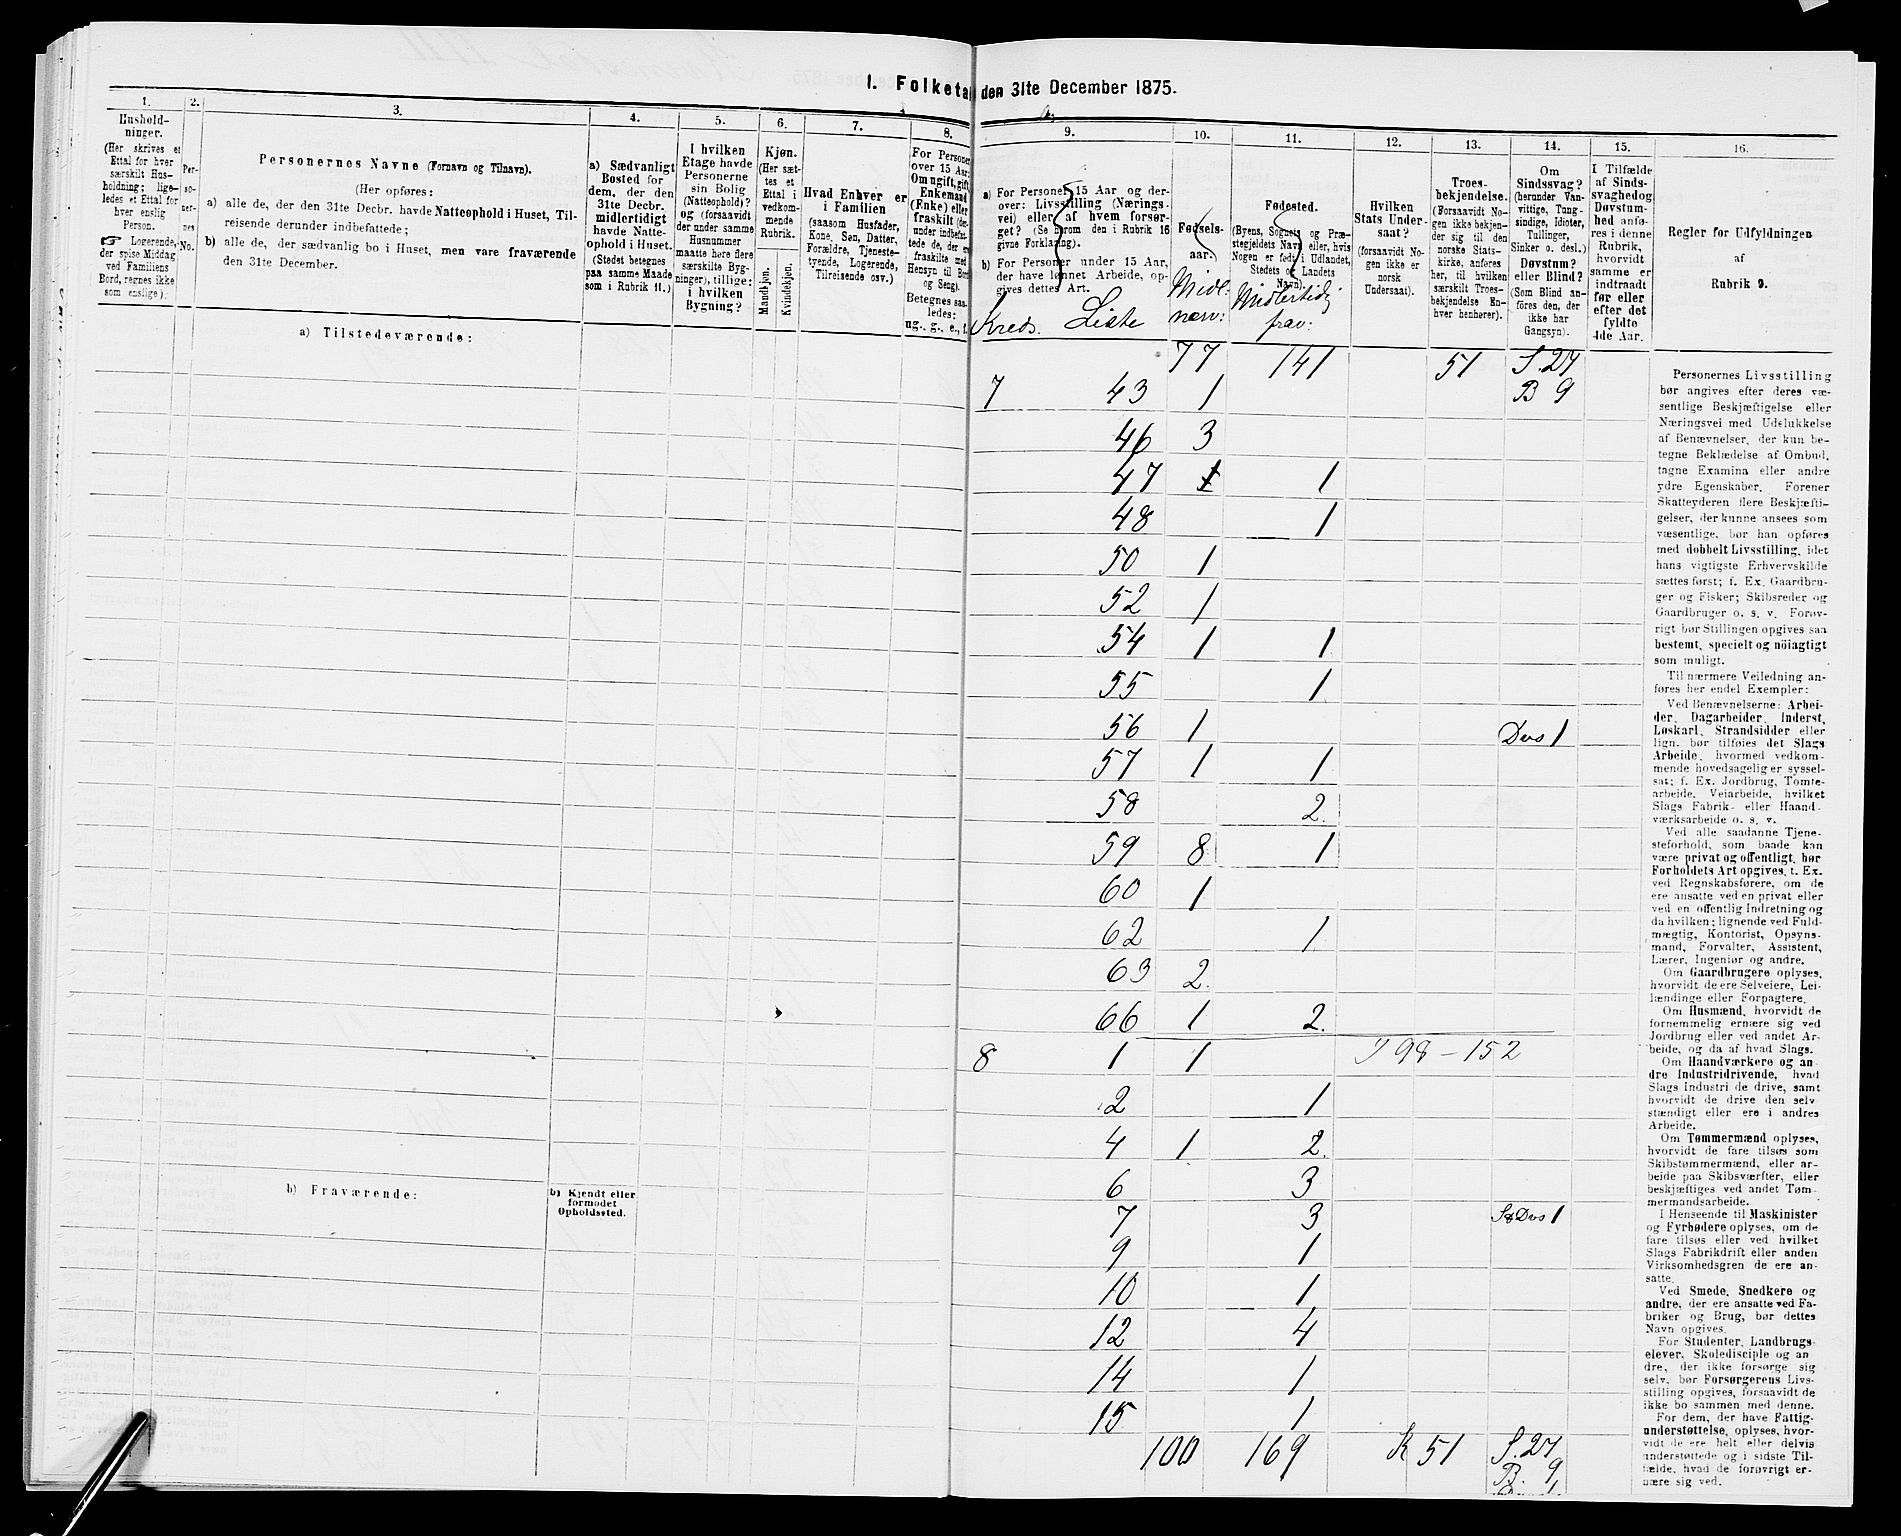 I. Folketa den 31te December 1875.
1.
Hushold-
ninger.
(Her skrives et
Ettal for hver
særskilt Hus-
holdning; lige-
ledes et Ettal for
hver enslig
Person.
☞ Logerende,
der spise Middag
ved Familiens
Bord, regnes ikke
som enslige).
2.
Per-
so-
ner-
nes
No.
3.
Personernes Navne (Fornavn og Tilnavn).
(Her opføres:
a) alle de, der den 31te Decbr. havde Natteophold i Huset, Til-
reisende derunder indbefattede;
b) alle de, der sædvanlig bo i Huset, men vare fraværende
den 31te December.
4.
a) Sædvanligt
Bosted for
dem, der den
31te Decbr.
midlertidigt
havde Natte-
ophold i Huset.
(Stedet betegnes
paa samme Maade
som i Rubrik 11.)
5.
I hvilken
Etage havde
Personerne
sin Bolig
(Natteophold)?
og (forsaavidt
der under samme
Husnummer
maatte høre flere
særskilte Byg-
ninger), tillige:
i hvilken
Bygning?
6.
Kjøn.
(Her sæt-
tes et
Ettal i
vedkom-
mende
Rubrik.
Mandkjøn.
Kvindekjøn.
7.
Hvad Enhver er
i Familien
(saasom Husfader,
Kone, Søn, Datter,
Forældre, Tjeneste-
tyende, Logerende,
Tilreisende osv.)
8.
For Personer
over 15 Aar:
Om ugift, gift,
Enkemand
(Enke) eller
fraskilt (der-
under indbefat-
tede de, der er
fraskilte med
Hensyn til Bord
og Seng).
Betegnes saa-
ledes:
ug., g., e., f.
9.
a) For Personer 15 Aar og der-
over: Livsstilling (Nærings-
vei) eller af hvem forsør-
get? (Se herom den i Rubrik 16
givne Forklaring).
b) For Personer under 15 Aar,
der have lønnet Arbeide, op-
gives dettes Art.
Kreds. Liste
10.
Fødsels-
aar.
Midl:
nærv:
11.
Fødested.
(Byens, Sognets og Præ-
stegjeldets Navn eller, hvis
Nogen er født i Udlandet,
Stedets og Landets
Navn).
Midlertidig
frav:
12.
Hvilken
Stats Under-
saat?
(forsaavidt No-
gen ikke er
norsk
Undersaat).
13.
Troes-
bekjendelse.
(Forsaavidt No-
gen ikke bekjen-
der sig til den
norske Stats-
kirke, anføres
her, til hvilken
særskilt Troes-
bekjendelse En-
hver henhører).
14.
Om
Sindssvag?
(herunder Van-
vittige, Tung-
sindige, Idioter,
Tullinger,
Sinker o. desl.)
Døvstum?
eller Blind?
(Som Blind an-
føres den, der
ikke har
Gangsyn).
15.
I Tilfælde
af Sinds-
svaghed og
Døvstum-
hed anfø-
res i denne
Rubrik,
hvorvidt
samme er
indtraadt
før eller
efter det
fyldte
4de Aar.
16.
Regler for Udfyldningen
af
Rubrik 9.
a) Tilstedeværende:
77 141 51 S. 27
7 43 1 B 9
46 3
47 1 1
48 1
50 1
52 1
54 1 1
55 1
56 1 Dvs 1
57 1 1
58 2.
59 8 1
60 1
62 1
63 2.
66 1 2.
8 1 1 798-152
2 1
4 1 2.
6 3
7 3 Dvs 1
9 1
10 1
12 4
14 1
15 1
100 169 K 51 S. 27
B. 9
b) Fraværende:
b) Kjendt eller
formodet
Opholdssted.
Personernes Livsstilling
bør angives efter deres væ-
sentlige Beskjæftigelse eller
Næringsvei med Udelukkelse
af Benævnelser, der kun be-
tegne Beklædelse af Ombud,
tagne Examina eller andre
ydre Egenskaber. Forener
Skatteyderen flere Beskjæfti-
gelser, der kunne ansees som
væsentlige, bør han opføres
med dobbelt Livsstilling, idet
hans vigtigste Erhvervskilde
sættes først; f. Ex. Gaardbru-
ger og Fisker; Skibsreder og
Gaardbruger o. s. v. Forøv-
rigt bør Stillingen opgives saa
bestemt, specielt og nöiagtigt
som muligt.
Til nærmere Veiledning an-
føres her endel Exempler:
Ved Benævnelserne: Arbei-
der, Dagarbeider, Inderst,
Løskarl, Strandsidder eller
lign. bør tilføies det Slags
Arbeide, hvormed vedkom-
mende hovedsagelig er syssel-
sat; f. Ex. Jordbrug, Tomte-
arbeide, Veiarbeide, hvilket
Slags Fabrik- eller Haand-
værksarbeide o. s. v.
Ved alle saadanne Tjene-
steforhold, som baade kan
være privat og offentligt, bør
Forholdets Art opgives, f. Ex.
ved Regnskabsførere, om de
ere ansatte ved en privat eller
ved en offentlig Indretning og
da hvilken; lignende ved Fuld-
mægtig, Kontorist, Opsyns-
mand, Forvalter, Assistent,
Lærer, Ingeniør og andre.
Om Gaardbrugere oplyses,
hvorvidt de ere Selveiere, Lei-
lændinge eller Forpagtere.
Om Husmænd, hvorvidt de
fornemmelig ernære sig ved
Jordbrug eller ved andet Ar-
beide, og da af hvad Slags.
Om Haandværkere og an-
dre Industridrivende, hvad
Slags Industri de drive, samt
hvorvidt de drive den selv-
stændigt eller ere i andres
Arbeide.
Om Tømmermænd oplyses,
hvorvidt de fare tilsøs som
Skibstømmermænd, eller ar-
beide paa Skibsværfter, eller
beskjæftiges ved andet Tøm-
mermandsarbeide.
I Henseende til Maskinister
og Fyrbødere oplyses, om de
fare tilsøs eller ved hvilket
Slags Fabrikdrift eller anden
Virksomhedsgren de ere an-
satte.
Ved Smede, Snedkere og
andre, der ere ansatte ved Fa-
briker og Brug, bør dettes
Navn opgives.
For Studenter, Landbrugs-
elever, Skoledisciple og an
dre, der ikke forsørge sig
selv, bør Forsørgerens Livs-
stilling opgives, forsaavidt de
ikke bo sammen med denne.
For dem, der have Fattig-
understøttelse, oplyses, hvor-
vidt de ere helt eller delvis
understøttede og i sidste Til-
fælde, hvad de forøvrigt er-
nære sig ved.